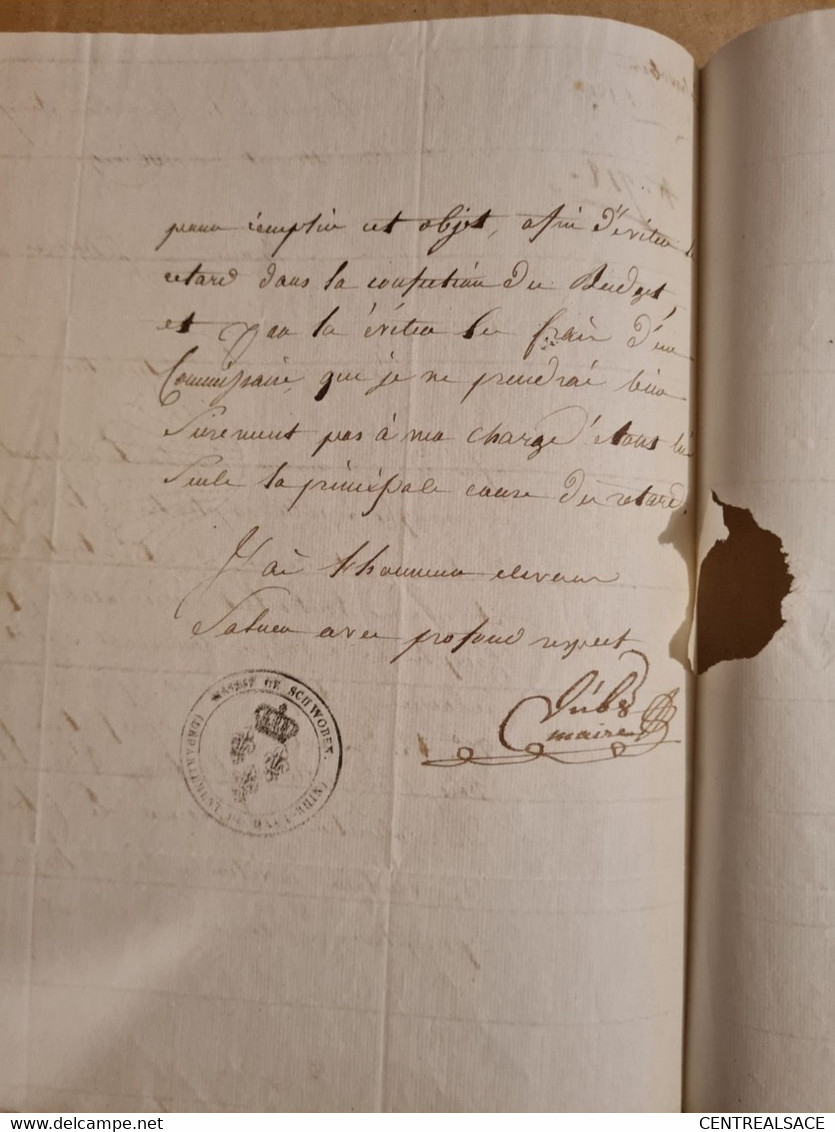 pour remplir cet objet, afin d'éviter le
retard dans la confection du Budget,
et par la éviter les frais d'un
Commissaire, que je ne prendrai bien
surement pas à ma charge d'étant lui
seule la principale cause du retard.
J'ai l'honneur de vous
saluer avec profond respect
maire
MAIRIE DE SCHWOBEN.
(DÉPARTEMENT DU HAUT-RHIN)
CENTREALSACE